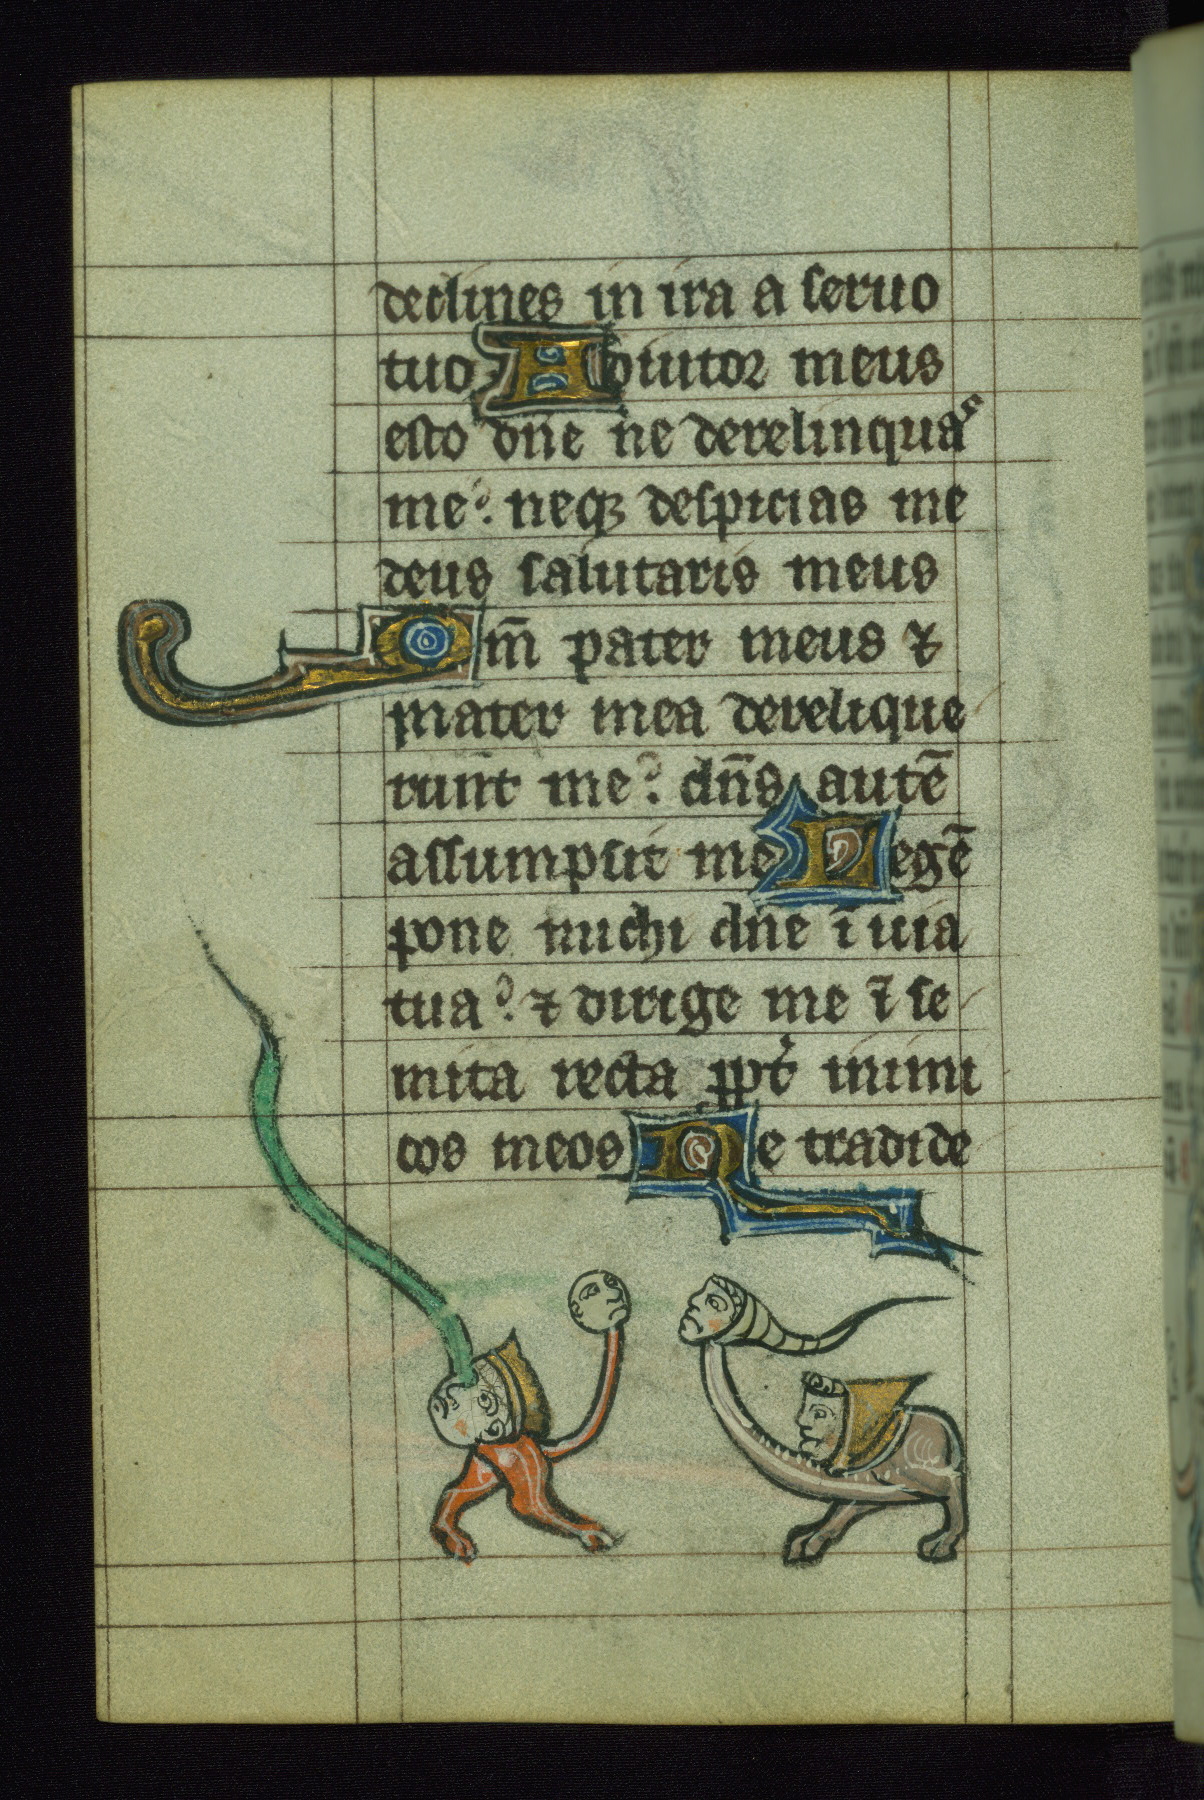 declines in ira a seruo
tuo Adiutor meus
esto dn̄e ne derelinquas
me. neqꝫ despicias me
deus salutaris meus
Qm̄ pater meus ⁊
mater mea derelique
runt me. dn̄s autē
assumpsit me Legē
pone michi dn̄e ī uia
tua. ⁊ dirige me ī se
mita recta ꝓpt̄ inimi
cos meos Ne tradide